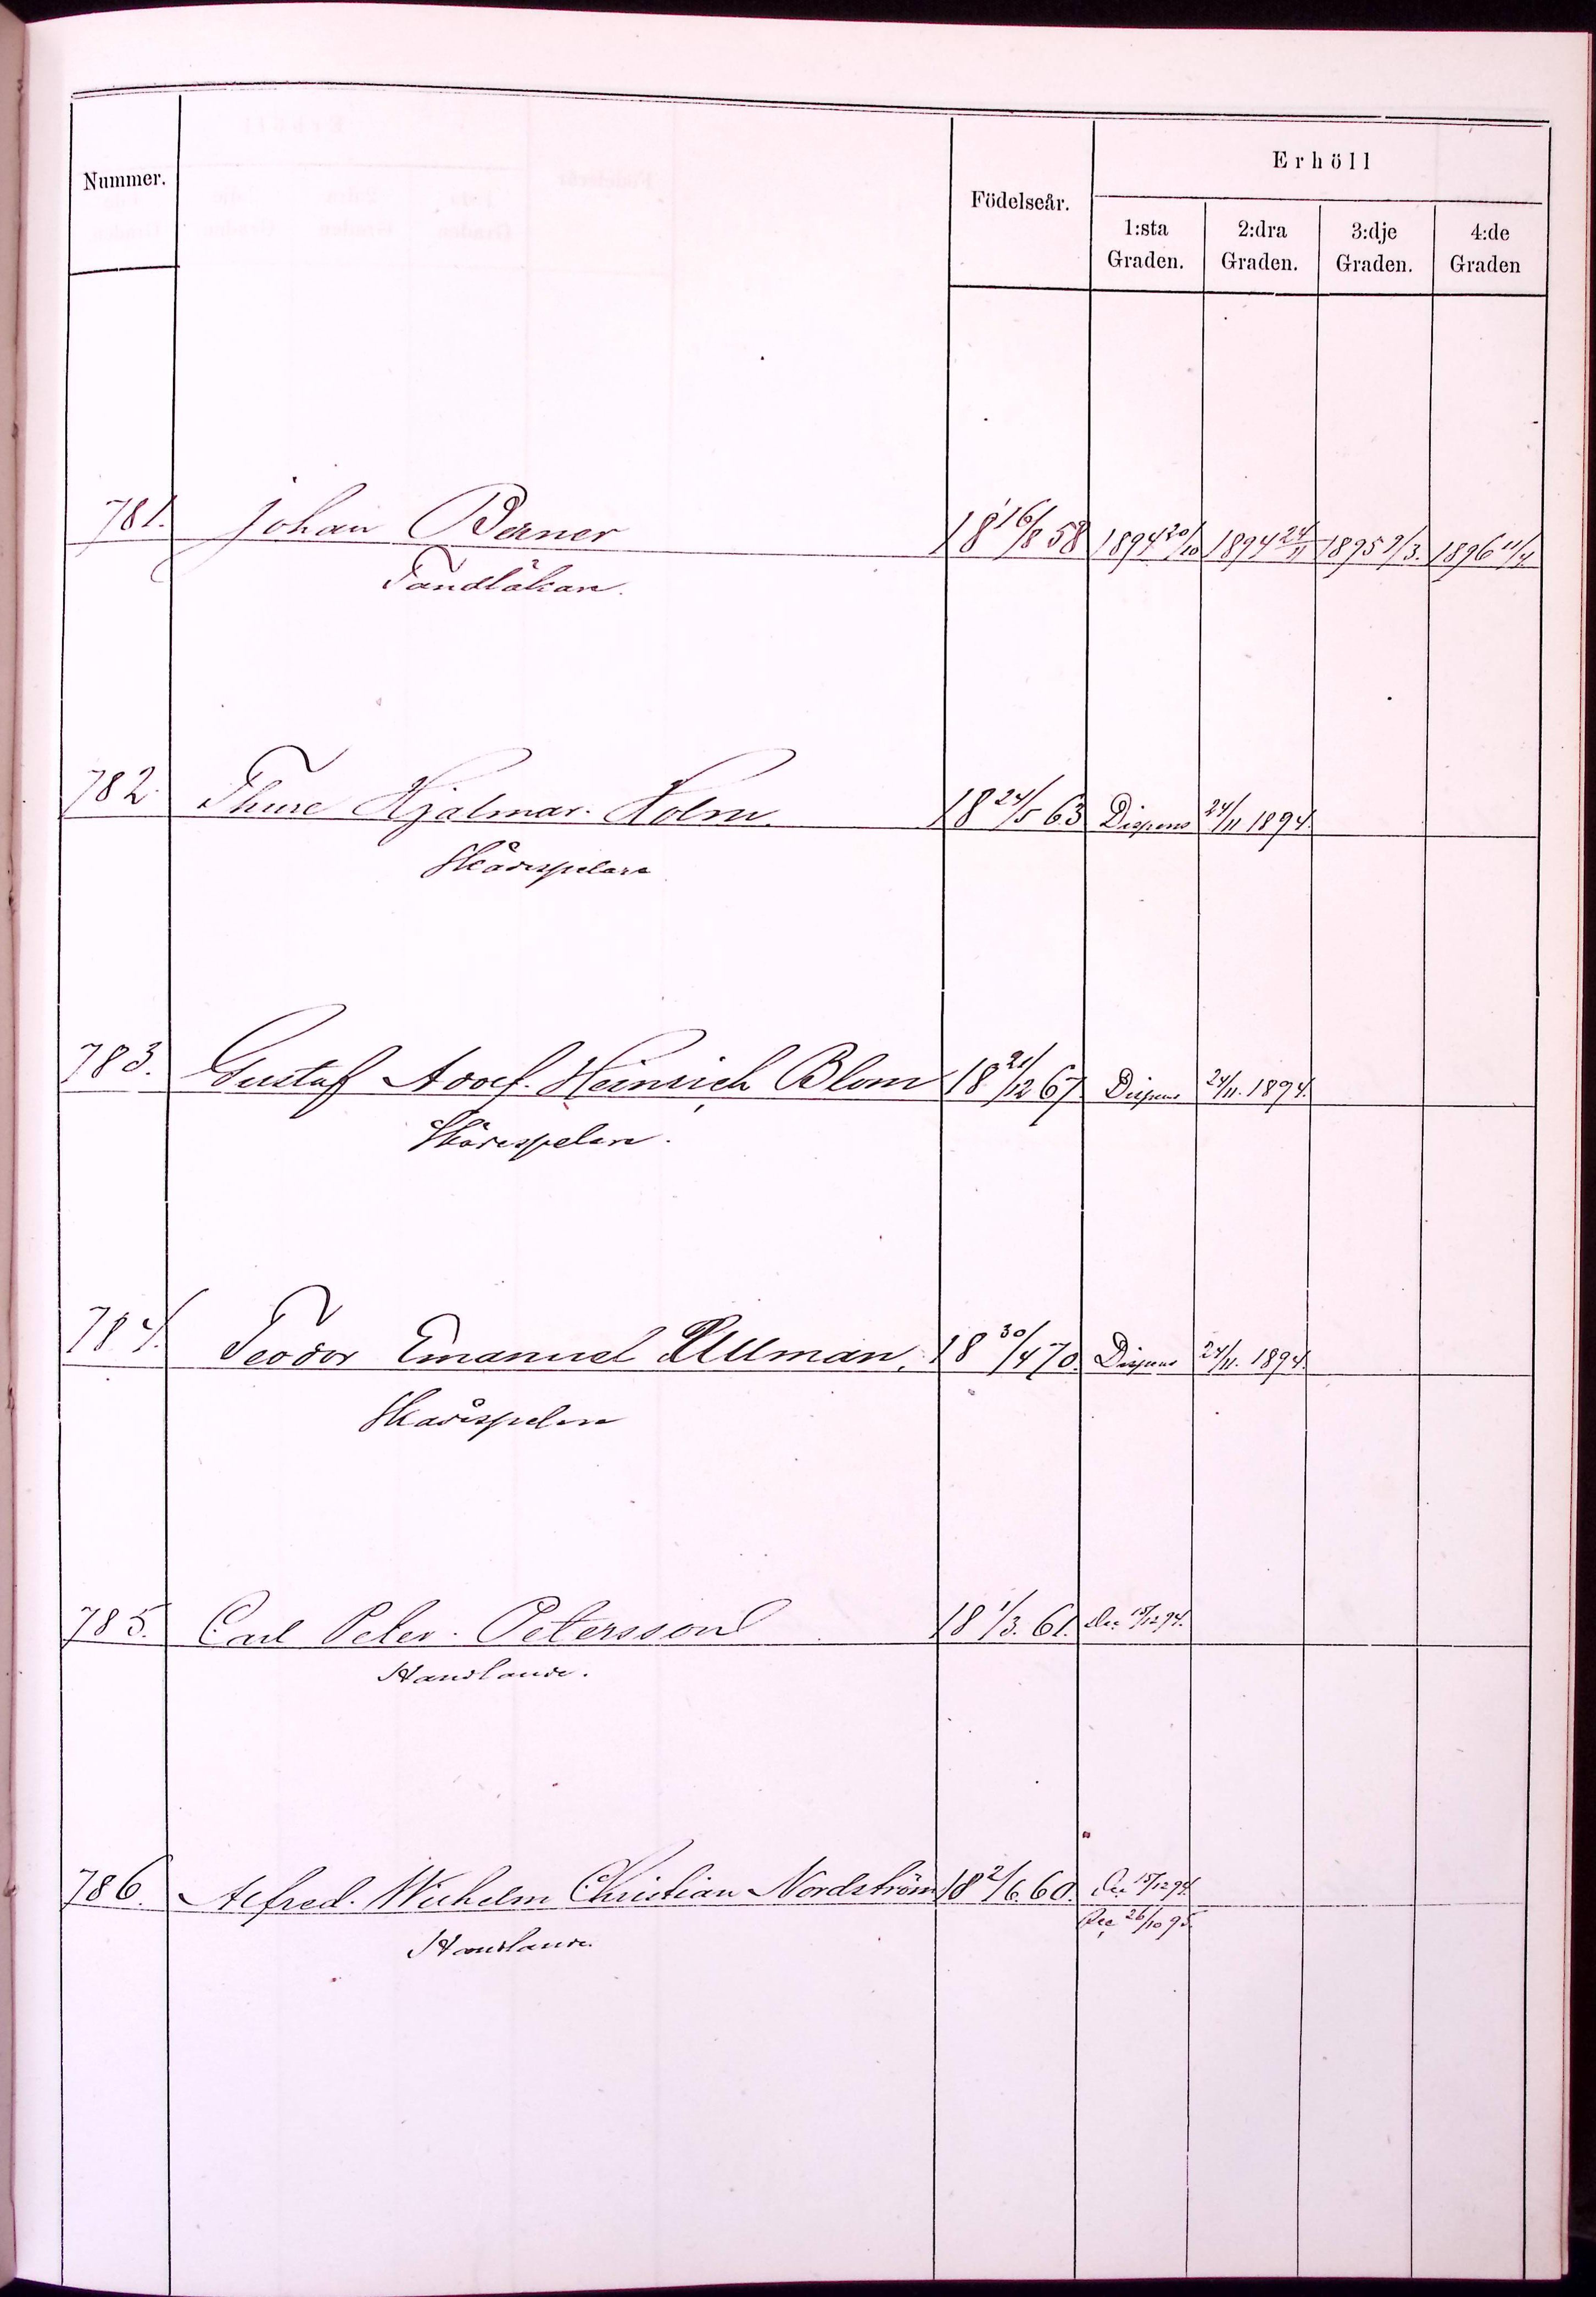 Erhöll
Nummer.
Födelseår.
1:sta Graden.
2:dra Graden.
3:dje Graden.
4:de Graden
781. Johan Berner 18 16/8 58 1894 20/10 1894 24/11 1895 9/3. 1896 11/4.
Tandläkare.
782. Thure Hjalmar Holm. 18 24/5 63 Dispens 24/11 1894.
Skådespelare
783. Gustaf Adolf Heinrich Blom 18 21/12 67 Dispens 24/11. 1894.
Skådespelare.
784. Teodor Emanuel Ullman. 18 30/4 70. Dispens 24/11. 1894.
Skådespelare
785. Carl Peter Petersson 18 1/3. 61. 15/12 94.
Handlande.
786. Alfred Wilhelm Christian Nordström 18 2/6. 60. 15/12 94.
Rec 26/10 95.
Handlande.